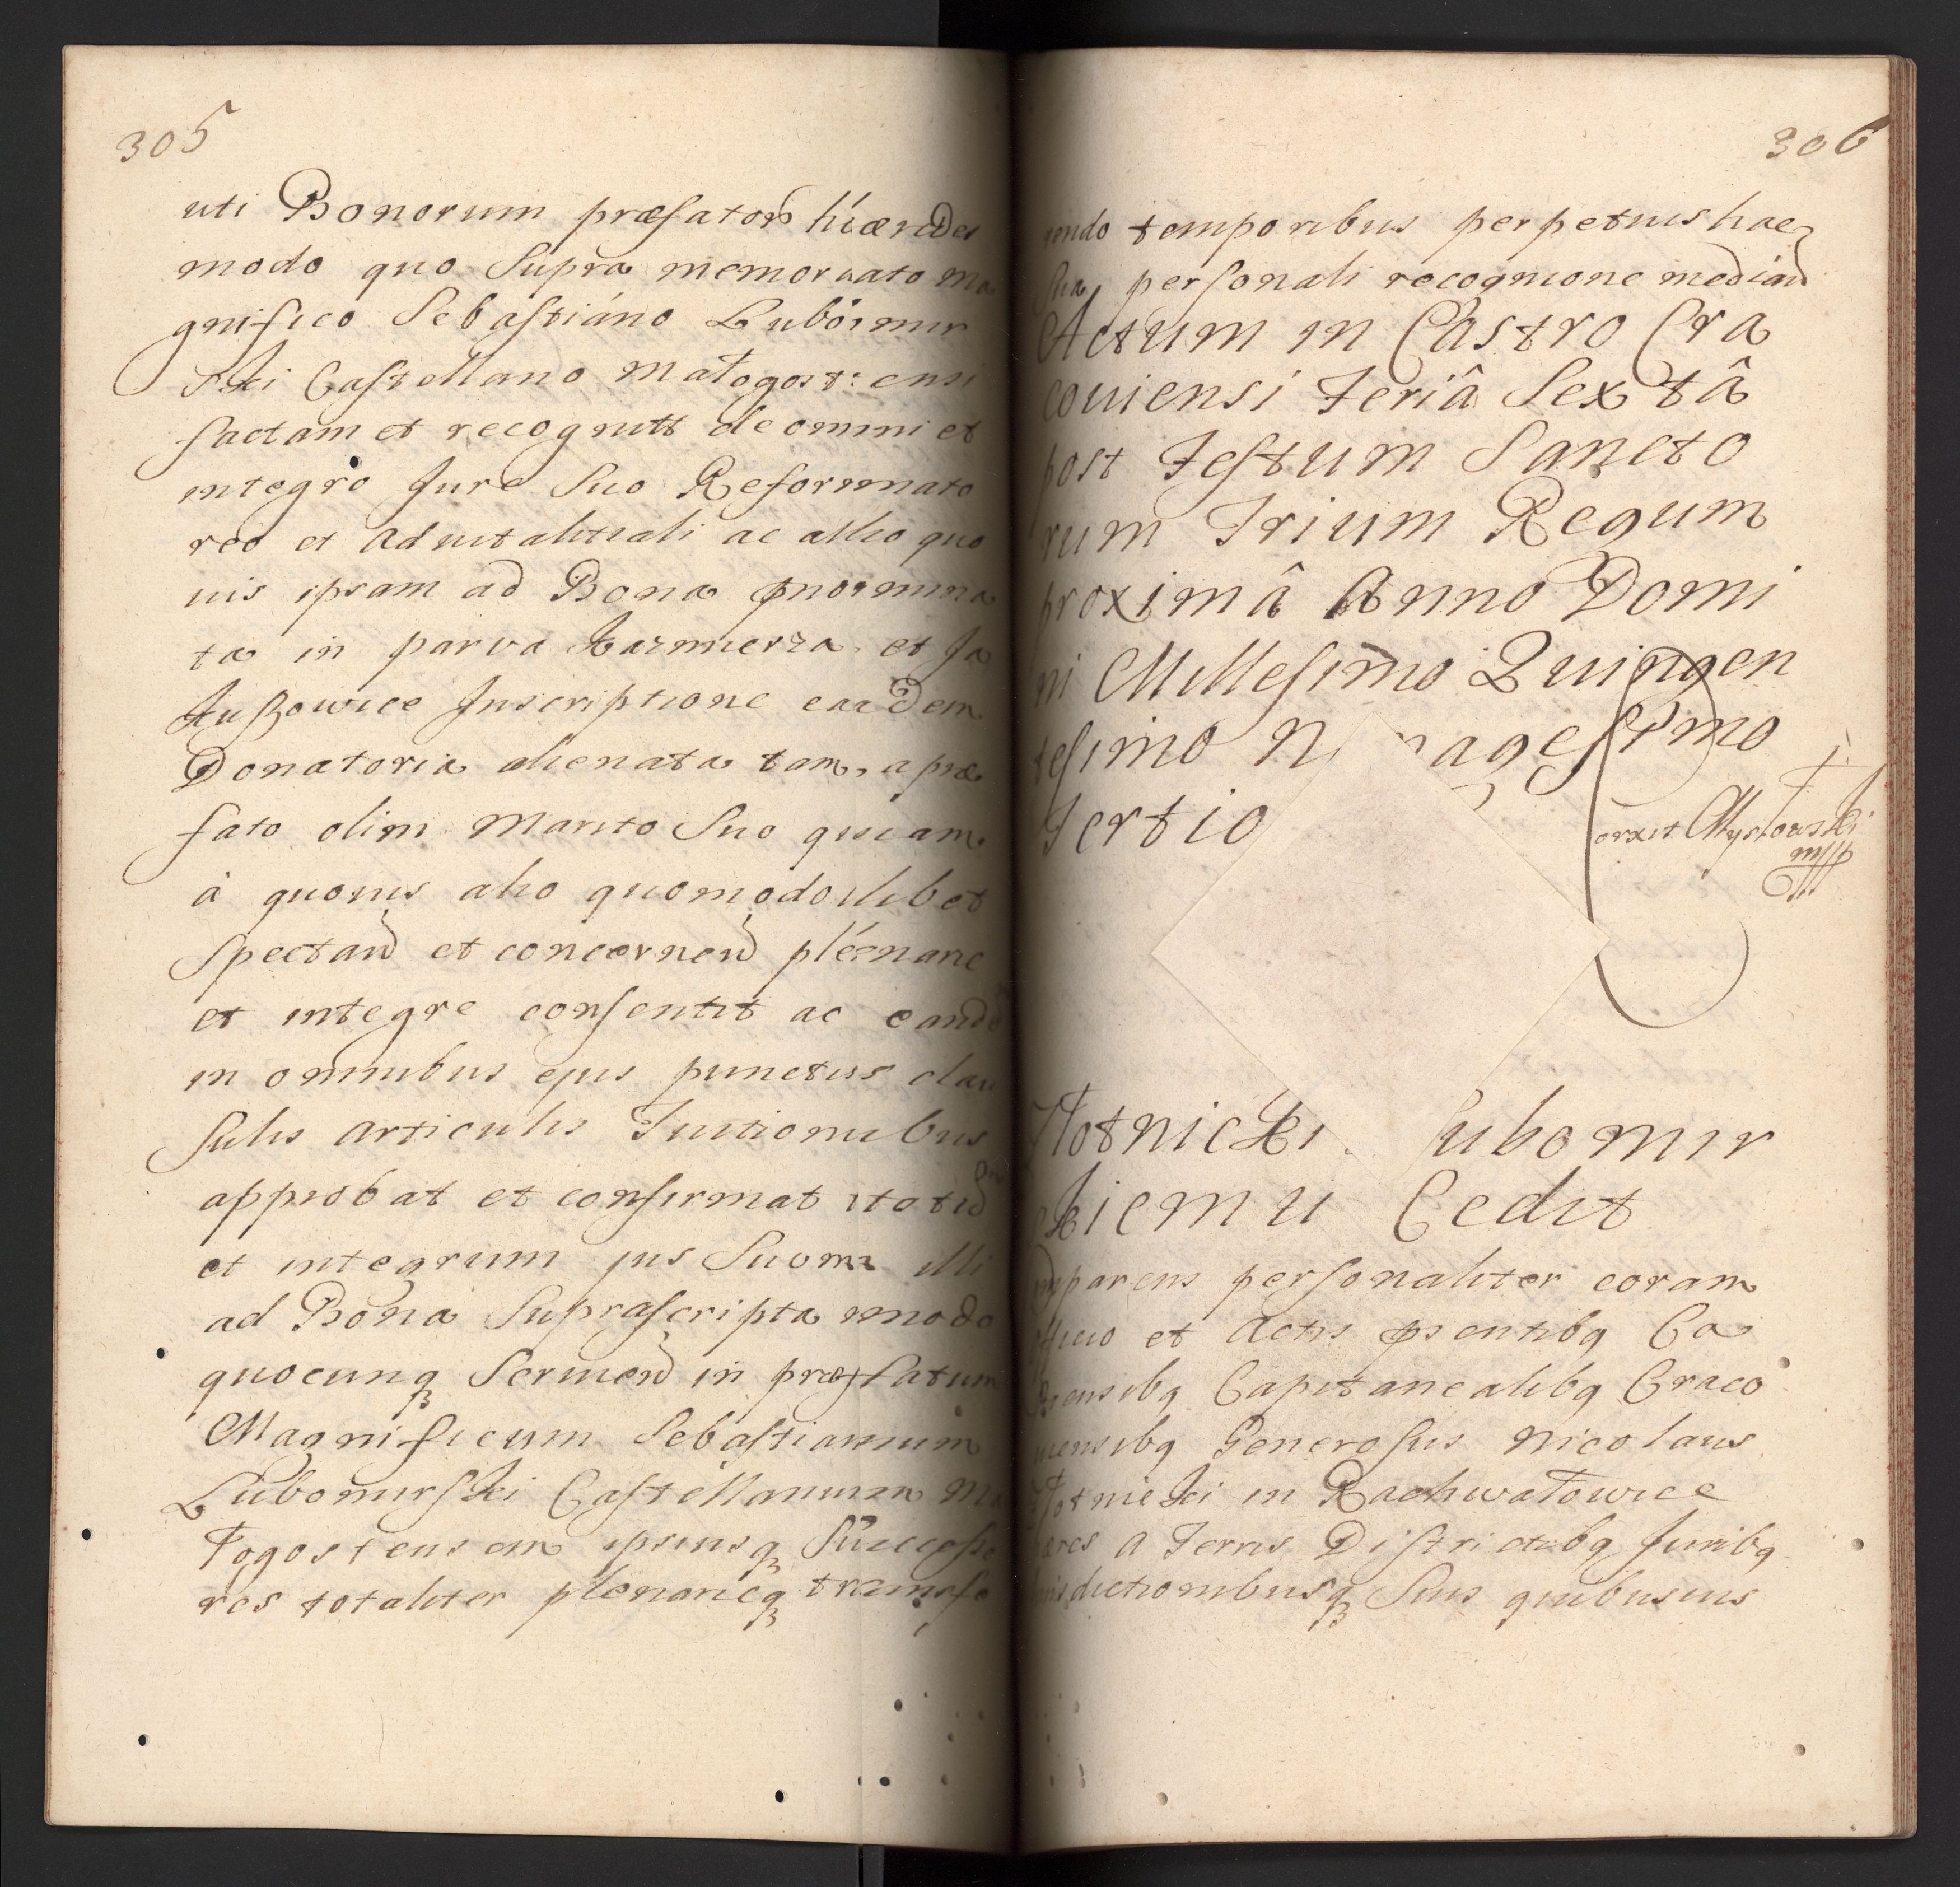 305
uti Bonorum præfatorũ hæredes
modo quo supra memorato Ma
gnifico Sebastiano Lubomir
ski Castellano Małogost: ensi
factam et recognitt de omni et
integro Jure suo Reformato
reo et advitalitiali ac alio quo
uis ipsam ad Bona pnomina
ta in parva Kazmierza et Ja
kuszowice Inscriptione eadem
Donatoria alienata tam a præ
fato olim Marito Suo quam
à quovis alio quomodolibet
Spectand et concernend plenarie
et integre consentit ac eand
in omnibus ejus punctis clau
sulis articulis Tuitionibus
approbat et confirmat totū
et integrum jus Suom illi
ad Bona Suprascripta modo
quocunq serviend in præfatum
Magnificum Sebastianum
Lubomirski Castellanum Ma
łogostensem ipsiusq Successo
res totaliter plenarieq transfe
306
rendo temporibus perpetuis hac
sua personali recognione mediañ
Actum in Castro Cra
couiensi Feriâ Sextâ
post Festum Sancto
rum Trium Regum
proximâ Anno Domi
ni Millesimo Quingen
tesimo N nagesimo
Tertio
orxit Mysłowski
mpp
Złotnicki Lubomir
skiemu Cedit
Comparens personaliter coram
officio et Actis psentibq Ca
strensibq Capitanealibq Craco
viensibq Generosus Nicolaus
Złotnicki in Rachwałowice
hæres a Terris Districtibq Juribq
jurisdictionibusq Suis quibusuis